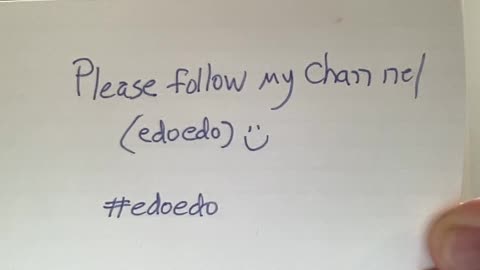 Please follow my channel
(edoedo) ü
#edoedo